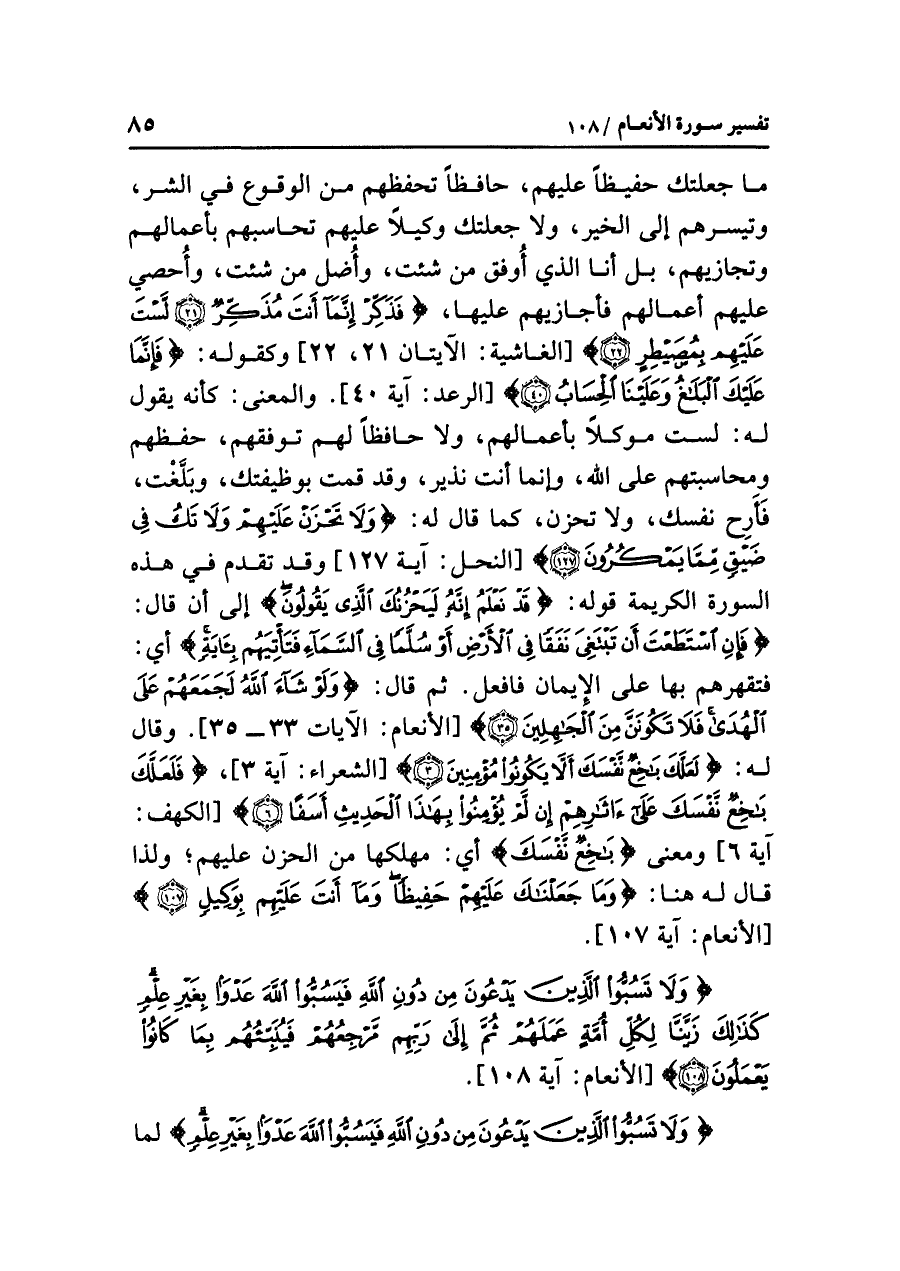 تفسير سورة الأنعام / ١٠٨ ٨٥
ما جعلتك حفيظاً عليهم، حافظاً تحفظهم من الوقوع في الشر،
وتيسرهم إلى الخير، ولا جعلتك وكيلاً عليهم تحاسبهم بأعمالهم
وتجازيهم، بل أنا الذي أُوفق من شئت، وأُضل من شئت، وأُحصي
عليهم أعمالهم فأجازيهم عليها، ﴿ فَذَكِّرْ إِنَّمَآ أَنتَ مُذَكِّرٌ ۝٢١ لَّسْتَ
عَلَيْهِم بِمُصَيْطِرٍ ۝٢٢﴾ [الغاشية: الآيتان ٢١، ٢٢] وكقوله: ﴿ فَإِنَّمَا
عَلَيْكَ ٱلْبَلَٰغُ وَعَلَيْنَا ٱلْحِسَابُ ۝٤٠﴾ [الرعد: آية ٤٠]. والمعنى: كأنه يقول
له: لست موكلاً بأعمالهم، ولا حافظاً لهم توفقهم، حفظهم
ومحاسبتهم على الله، وإنما أنت نذير، وقد قمت بوظيفتك، وبَلَّغْت،
فَأَرِح نفسك، ولا تحزن، كما قال له: ﴿وَلَا تَحْزَنْ عَلَيْهِمْ وَلَا تَكُ فِى
ضَيْقٍ مِّمَّا يَمْكُرُونَ ۝١٢٧﴾ [النحل: آية ١٢٧] وقد تقدم في هذه
السورة الكريمة قوله: ﴿ قَدْ نَعْلَمُ إِنَّهُۥ لَيَحْزُنُكَ ٱلَّذِى يَقُولُونَۖ﴾ إلى أن قال:
﴿ فَإِنِ ٱسْتَطَعْتَ أَن تَبْتَغِىَ نَفَقًا فِى ٱلْأَرْضِ أَوْ سُلَّمًا فِى ٱلسَّمَآءِ فَتَأْتِيَهُم بِـَٔايَةٍۚ﴾ أي:
فتقهرهم بها على الإيمان فافعل. ثم قال: ﴿وَلَوْ شَآءَ ٱللَّهُ لَجَمَعَهُمْ عَلَى
ٱلْهُدَىٰۚ فَلَا تَكُونَنَّ مِنَ ٱلْجَٰهِلِينَ ۝٣٥﴾ [الأنعام: الآيات ٣٣ ــ ٣٥]. وقال
له: ﴿ لَعَلَّكَ بَٰخِعٌ نَّفْسَكَ أَلَّا يَكُونُوا۟ مُؤْمِنِينَ ۝٣﴾ [الشعراء: آية ٣]، ﴿ فَلَعَلَّكَ
بَٰخِعٌ نَّفْسَكَ عَلَىٰٓ ءَاثَٰرِهِمْ إِن لَّمْ يُؤْمِنُوا۟ بِهَٰذَا ٱلْحَدِيثِ أَسَفًا ۝٦﴾ [الكهف:
آية ٦] ومعنى ﴿ بَٰخِعٌ نَّفْسَكَ﴾ أي: مهلكها من الحزن عليهم؛ ولذا
قال له هنا: ﴿وَمَا جَعَلْنَٰكَ عَلَيْهِمْ حَفِيظًاۖ وَمَآ أَنتَ عَلَيْهِم بِوَكِيلٍ ۝١٠٧﴾
[الأنعام: آية ١٠٧].
﴿ وَلَا تَسُبُّوا۟ ٱلَّذِينَ يَدْعُونَ مِن دُونِ ٱللَّهِ فَيَسُبُّوا۟ ٱللَّهَ عَدْوًۢا بِغَيْرِ عِلْمٍۗ
كَذَٰلِكَ زَيَّنَّا لِكُلِّ أُمَّةٍ عَمَلَهُمْ ثُمَّ إِلَىٰ رَبِّهِم مَّرْجِعُهُمْ فَيُنَبِّئُهُم بِمَا كَانُوا۟
يَعْمَلُونَ ۝١٠٨﴾ [الأنعام: آية ١٠٨].
﴿ وَلَا تَسُبُّوا۟ ٱلَّذِينَ يَدْعُونَ مِن دُونِ ٱللَّهِ فَيَسُبُّوا۟ ٱللَّهَ عَدْوًۢا بِغَيْرِ عِلْمٍۗ﴾ لما